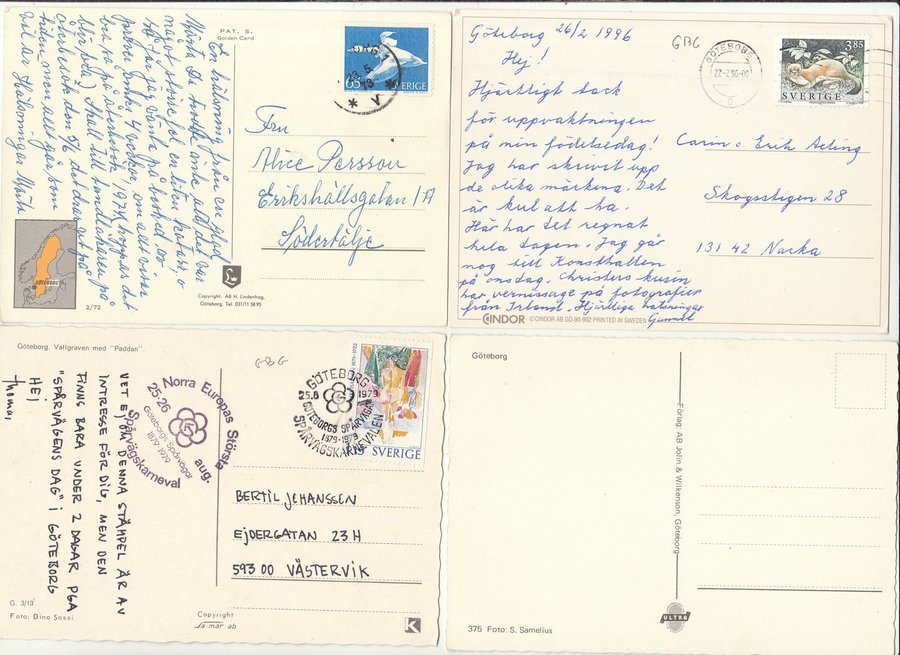 PAT. S.
Golden Card
En hälsning från en glad
Märta. Du trodde inte att det var
något svinn
på
1974 hoppas det
men allt går som
Hälsningar Märta
65 SVERIGE
Fru
Alice Persson
Erikshällsgatan 1A
Södertälje
GÖTEBORG
2/72
Copyright: AB H. Lindenhag,
Göteborg. Tel. 031/11 58 95
Göteborg 26/2 1996
GBG
Hej!
Hjärtligt tack
för uppvaktningen
på min födelsedag!
Jag har skrivit upp
de olika märkena. Det
är kul att ha.
Här har det regnat
hela dagen. Jag går
nog till Konsthallen
på onsdag. Christers kusin
har vernissage på fotografier
från Irland. Hjärtliga hälsningar
Gunnel
GÖTEBORG
27-2.96
3.85
SVERIGE
Carin o. Erik
Skogsstigen 28
131 42 Nacka
CINDOR © CINDOR AB GÖ-90-902 PRINTED IN SWEDEN
Göteborg. Vallgraven med "Paddan".
GBG
Norra Europas Största
25-26 aug.
Göteborgs Spårvägar
1879-1979
Spårvägskarneval
GÖTEBORG
25.8 1979
GÖTEBORGS SPÅRVÄGAR
1879-1979
SPÅRVÄGSKARNEVALEN
SVERIGE
VET EJ OM DENNA STÄMPEL ÄR AV
INTRESSE FÖR DIG, MEN DEN
FINNS BARA UNDER 2 DAGAR PGA
"SPÅRVÄGENS DAG" i GÖTEBORG
HEJ
Thomas
BERTIL JOHANSSON
EJDERGATAN 23 H
593 00 VÄSTERVIK
G. 3/13
Foto: Dino Sassi
Copyright
Sa-mar ab
K
Göteborg
Förlag: AB Jolin & Wilkenson, Göteborg
ULTRA
375 Foto: S. Samelius